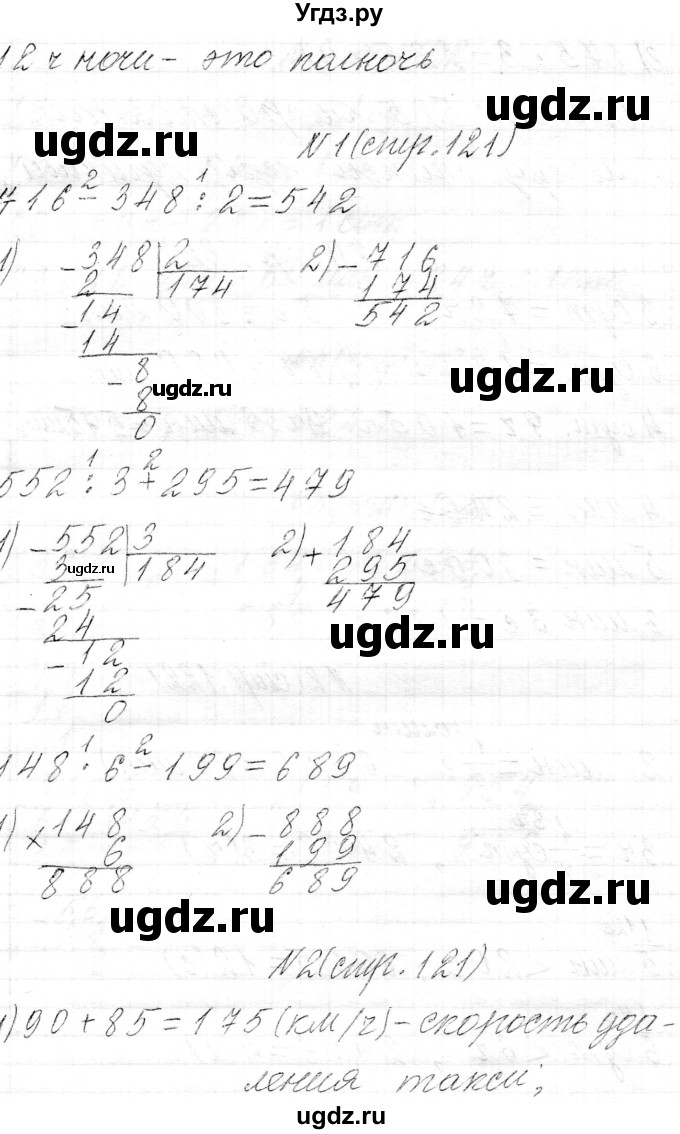 Угдз.ру
12 ч ночи - это полночь
ugdz.ru
ugdz.ru
№1 (стр. 121)
716 - 348 : 2 = 542
2 1
1) - 348 | 2
2 174
- 14
14
- 8
8
0
2) - 716
174
542
ugdz.ru
ugdz.ru
552 : 3 + 295 = 479
1 2
1) - 552 | 3
3 184
- 25
24
- 12
12
0
2) + 184
295
479
ugdz.ru
ugdz.ru
148 : 6 - 199 = 689
1 2
1) × 148
6
888
2) - 888
199
689
ugdz.ru
ugdz.ru
№2 (стр. 121)
1) 90 + 85 = 175 (км/ч) - скорость уда-
ления такси;
ugdz.ru